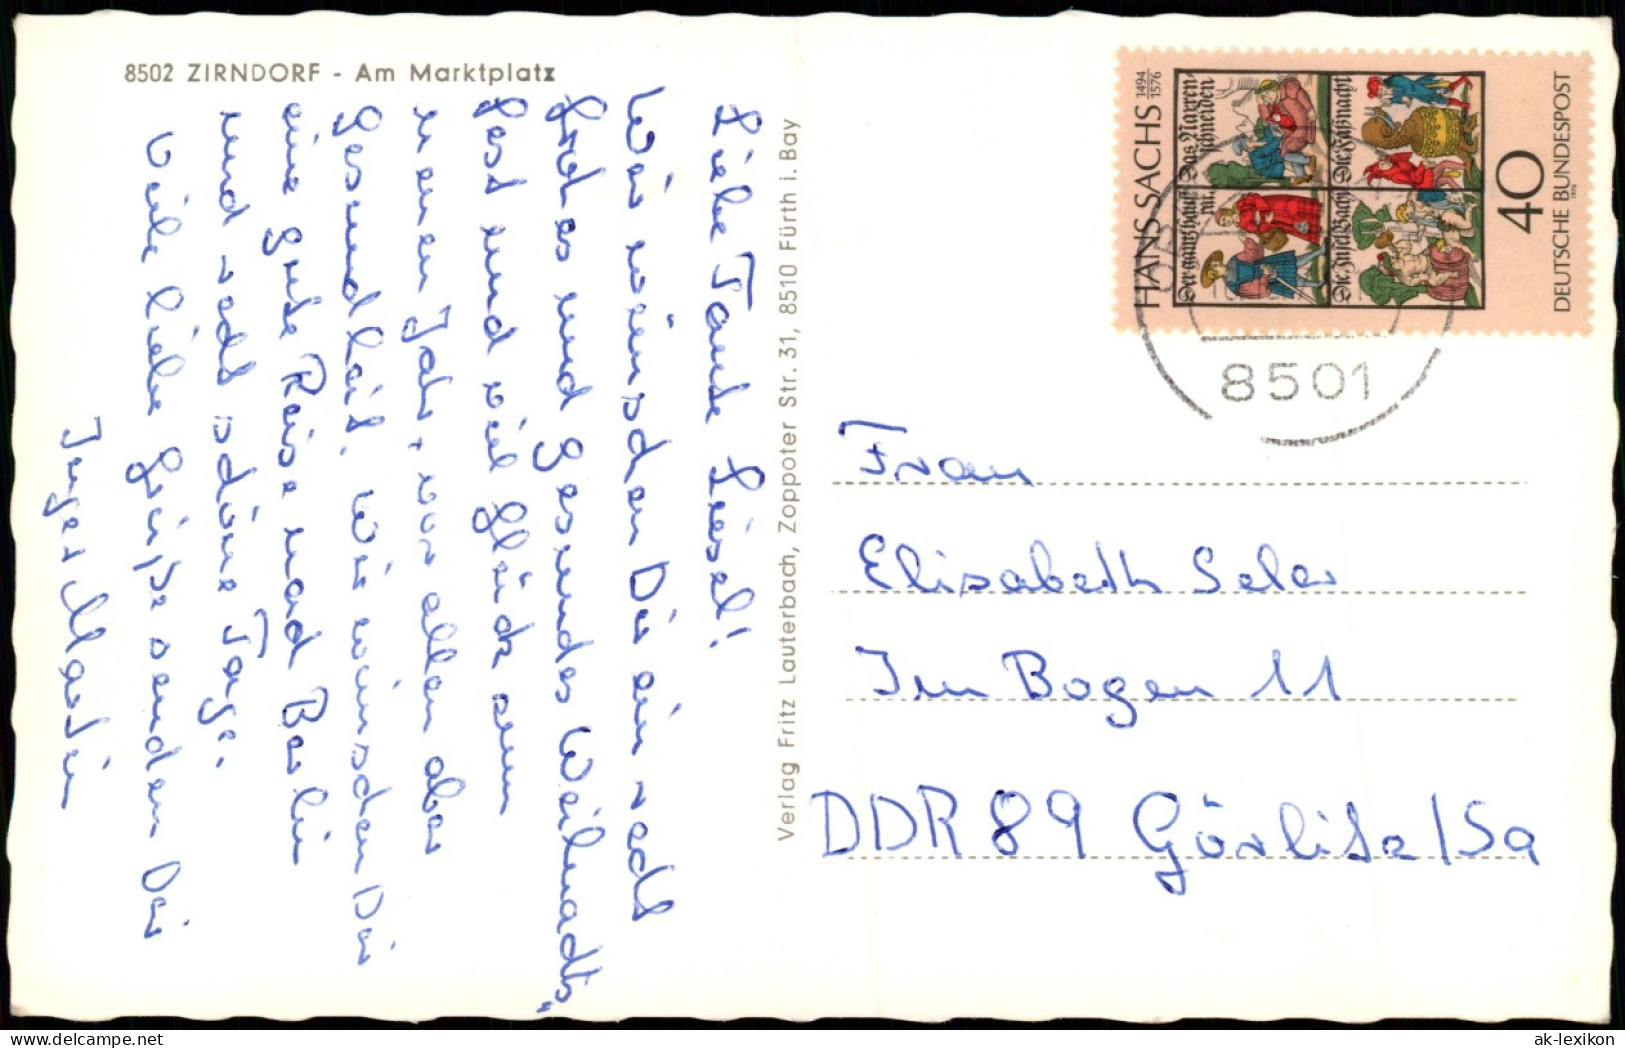 8502 ZIRNDORF - Am Marktplatz
Liebe Tante Liesel!
Wir wünschen Dir ein recht
frohes und gesundes Weihnachts„
fest und viel Glück zum
neuen Jahr, vor allen aber
Gesundheit. Wir wünschen Dir
eine gute Reise nach Berlin
und recht schöne Tage.
Viele liebe Grüße senden Dir
Inge + Martin
Verlag Fritz Lauterbach, Zoppoter Str. 31, 8510 Fürth i. Bay
HANS SACHS 1494 1576
Der gantz haußrat.
Das Narrenschneiden
Die Insel Bachi
Die Faßnacht
40
DEUTSCHE BUNDESPOST
1976
8501
Frau
Elisabeth Seler
Im Bogen 11
DDR 89 Görlitz/Sa
ak-lexikon